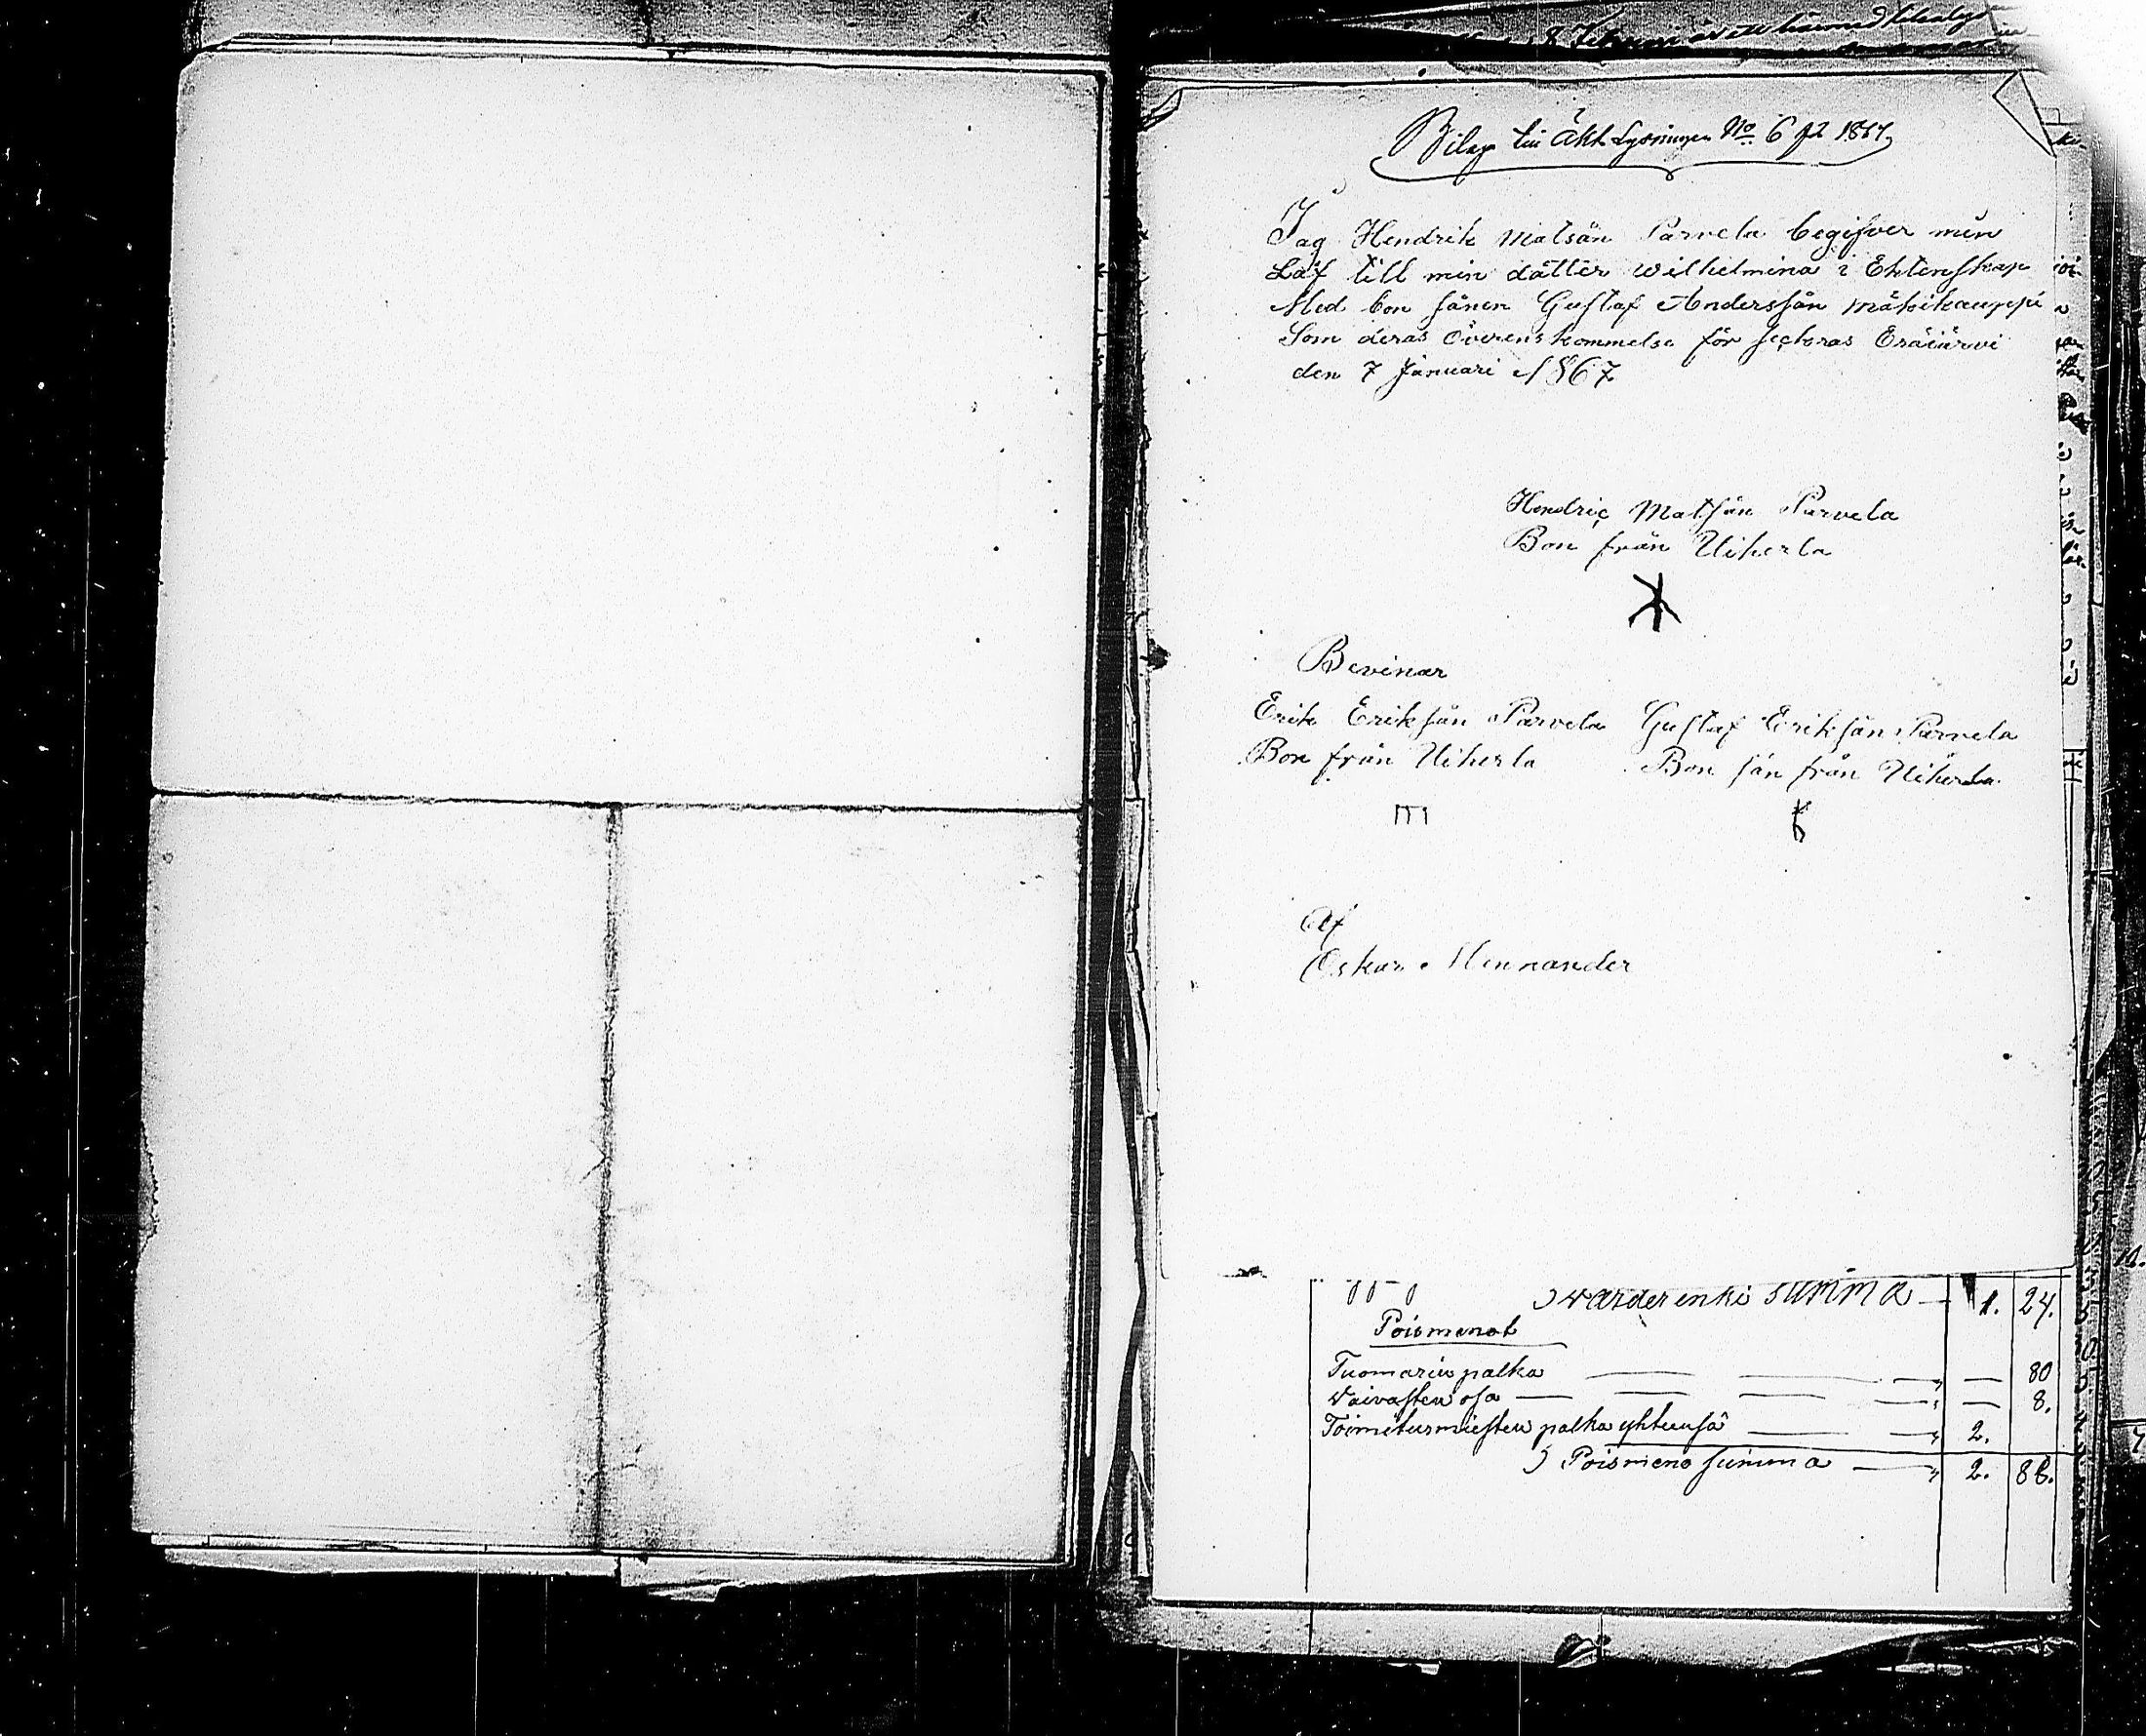 8 Februari
Bilaga till Äkt. Lysningen No 6 för 1867.
Jag Hendrik Matsån Parvela begifver min
Låf till min dåtter Wilhelmina i Ektenskap
Med bon sånen Gustaf Anderssån Mäkikauppi
Som deras överenskommelse för seckras Eräiärvi
den 7 Januari 1867.
Hendric Matsån Parvela
Bon från Uiherla
Bevinar
Erik Eriksån Parvela Gustaf Eriksån Parvela
Bon från Uiherla Bon sån från Uiherla
Af
Oskar Mennander
warderinki summa 1. 24.
Poismenot
Tuomarin palka — — — " — 80
Waivasten osa — — — " — 8.
Toimitusmiesten palka yhteensä — — " 2.
Poismeno summa — " 2. 88.